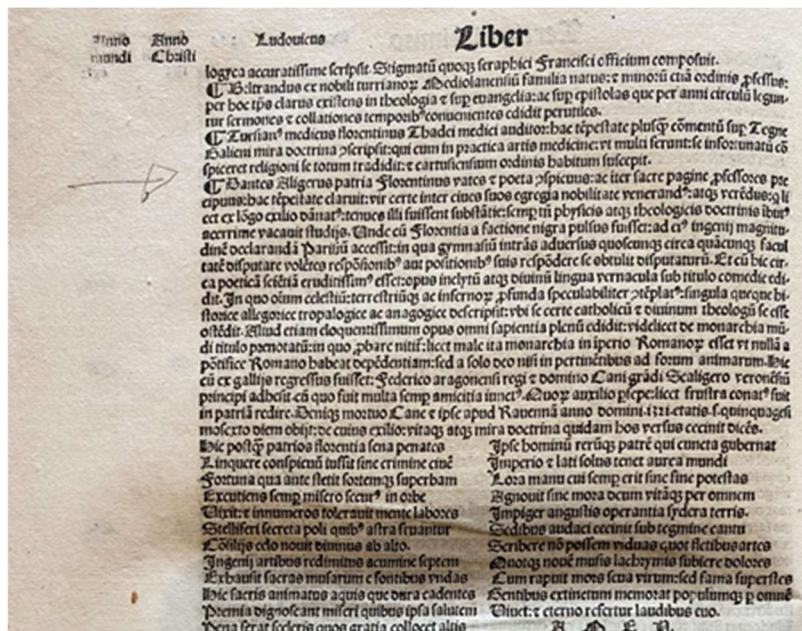 Anno Anno Ludouicus Liber
mundi Christi
logyca accuratissime scripsit. Stigmatũ quoqꝫ seraphici Francisci officium composuit.
¶ Beltrandus ex nobili turrianoꝝ Mediolanensiũ familia natus: ⁊ minorũ ordinis ꝓfessus:
per hoc tp̃s clarus existens in theologia ⁊ suꝑ euangelia: ac suꝑ epistolas que per anni circulũ legun-
tur sermones ⁊ collationes temporibꝰ conuenientes edidit perutiles.
¶ Tursianꝰ medicus florentinus Thadei medici auditor: hac tẽpestate plusqꝫ cõmentũ suꝑ Tegne
Galieni mira doctrina ꝯscripsit: qui cum in practica artis medicine: vt multi ferunt: se infortunatũ cõ
spiceret religioni se totum tradidit: ⁊ cartusiensium ordinis habitum suscepit.
¶ Dantes Aligerus patria Florentinus vates ⁊ poeta ꝯspicuus: ac iter sacre pagine ꝓfessores pre
cipuus: hac tẽpestate claruit: vir certe inter ciues suos egregia nobilitate venerandꝰ: atqꝫ verẽdus: qͥ li
cet ex lõgo exilio dãnatꝰ: tenues illi fuissent substãtie: semꝑ tñ physicis atqꝫ theologicis doctrinis ibutꝰ
acerrime vacauit studijs. Unde cũ Florentia a factione nigra pulsus fuisset: ad ingenij magnitu-
dinẽ declarandã Parisiũ accessit: in qua gymnasiũ intrãs aduersus quoscunqꝫ circa quãcunqꝫ facul
tatẽ disputare volẽtes respõsionibꝰ aut positionibꝰ suis respõdere se obtulit disputaturũ. Et cũ hic cir-
ca poeticã sciẽtiã eruditissimꝰ esset: opus inclytũ atqꝫ diuinũ lingua vernacula sub titulo comedie edi-
dit. In quo oĩum celestiũ: terrestriũqꝫ ac infernoꝝ ꝓfunda speculabiliter ꝯtẽplatꝰ: singula queqꝫ hi-
storice allegorice tropalogice ac anagogice descripsit: vbi se certe catholicũ ⁊ diuinum theologũ se esse
ostẽdit. Aliud etiam eloquentissimum opus omni sapientia plenũ edidit: videlicet de monarchia mũ-
di titulo prenotatũ: in quo ꝓbare nitit̃: licet male ita monarchia in ĩperio Romanoꝝ esset vt nullã a
põtifice Romano habeat depẽdentiam: sed a solo deo nisi in pertinẽtibus ad forum animarum. Hic
cũ ex gallijs regressus fuisset: Federico aragonensi regi ⁊ domino Cani grãdi Scaligero veronẽsiũ
principi adhesit cũ quo fuit multa semꝑ amicitia. Quoꝝ auxilio ꝑsepe: licet frustra conatꝰ fuit
in patriã redire. Deniqꝫ mortuo Cane ⁊ ipse apud Rauennã anno domini .1321. etatis .s. quinquagesi
mosexto diem obijt: de cuius exilio: vitaqꝫ atqꝫ mira doctrina quidam hos versus cecinit dicẽs.
Hic postqꝫ patrios florentia sena penates
Linquere conspicuũ iussit sine crimine ciuẽ
Fortuna qua ante stetit sortemqꝫ superbam
Excutiens semꝑ misero securꝰ in orbe
Vixit: ⁊ innumeros tolerauit mente labores
Stelliferi secreta poli quibꝰ astra fruantur
Cõsilijs celo nouit diuinus ab alto.
Ingenij artibus redimitus acumine septem
Exhausit sacras musarum e fontibus vndas
Hic sacris animatus aquis que dura cadentes
Premia dignoscant miseri quibus ipsa salutem
Pena ferat sceleris quos gratia collocet altis
Ipse hominũ rerũqꝫ patrẽ qui cuncta gubernat
Imperio ⁊ lati solus tenet aurea mundi
Lora manu cui semꝑ erit sine fine potestas
Agnouit sine mora deum vitãqꝫ per omnem
Impiger angustis operantia sydera terris.
Sedibus audaci cecinit sub tegmine cantu
Scribere nõ possem viduas quot fletibus artes
Quotqꝫ nouẽ musis lachrymis subiere dolores
Cum rapuit mors seua virum: sed fama superstes
Gentibus extinctum memorat populumqꝫ ꝑ omnẽ
Viuet: ⁊ eterno refertur laudibus euo.
A M E N.